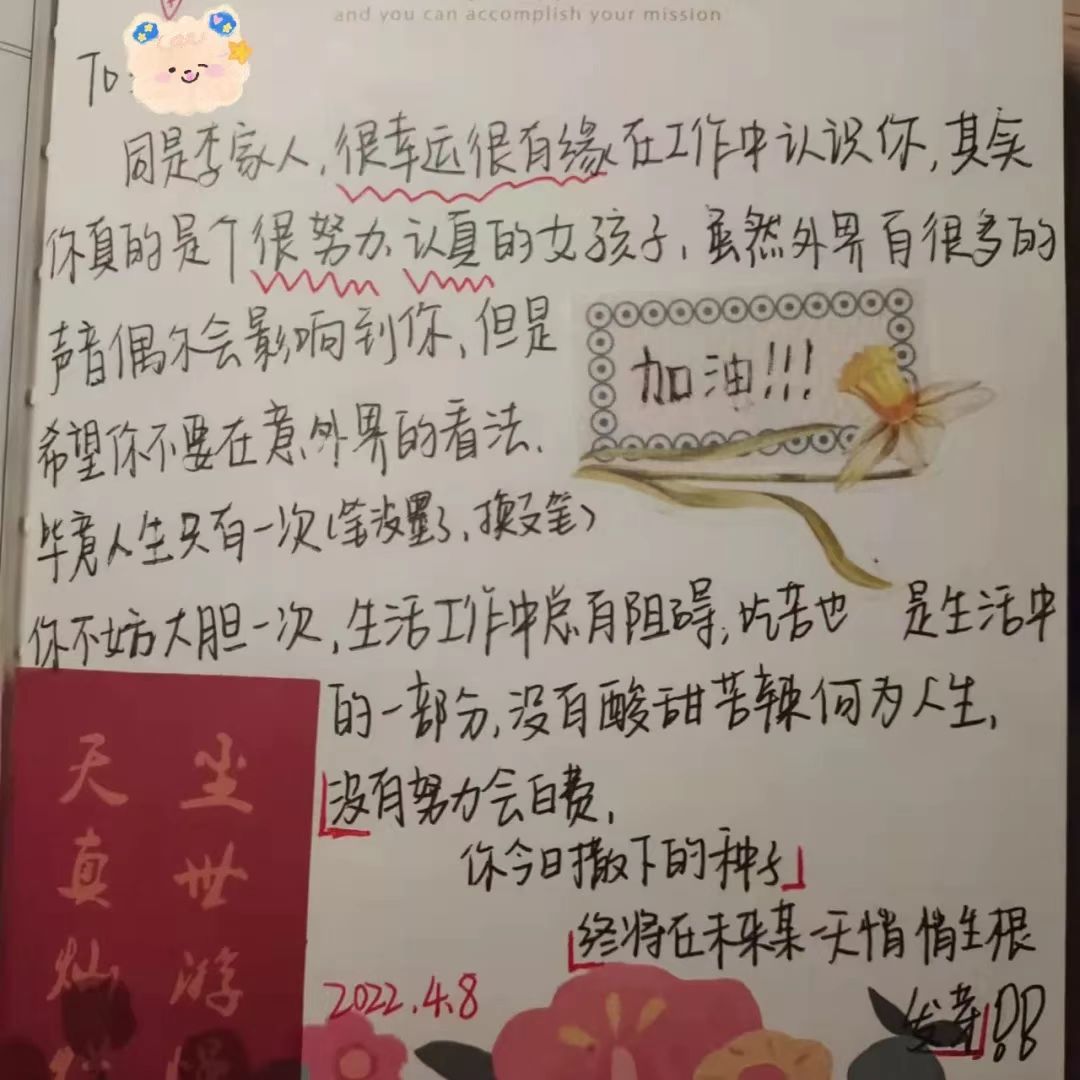 and you can accomplish your mission
To:
同是李家人,很幸运很有缘在工作中认识你,其实
你真的是个很努力、认真的女孩子,虽然外界有很多的
声音偶尔会影响到你,但是
加油!!!
希望你不要在意外界的看法.
毕竟人生只有一次(笔没墨了,换支笔)
你不妨大胆一次,生活工作中总有阻碍,吃苦也 是生活中
的一部分,没有酸甜苦辣何为人生,
「没有努力会白费,
你今日撒下的种子」
「终将在未来某一天悄悄生根
发芽」!!
2022.4.8
尘世游
天真灿